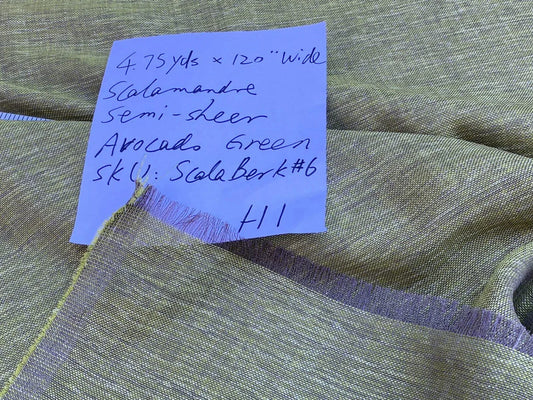 4.75 yds x 120" Wide
Scalamandre
Semi-sheer
Avocado Green
SKU: ScalaBerk#6
H1